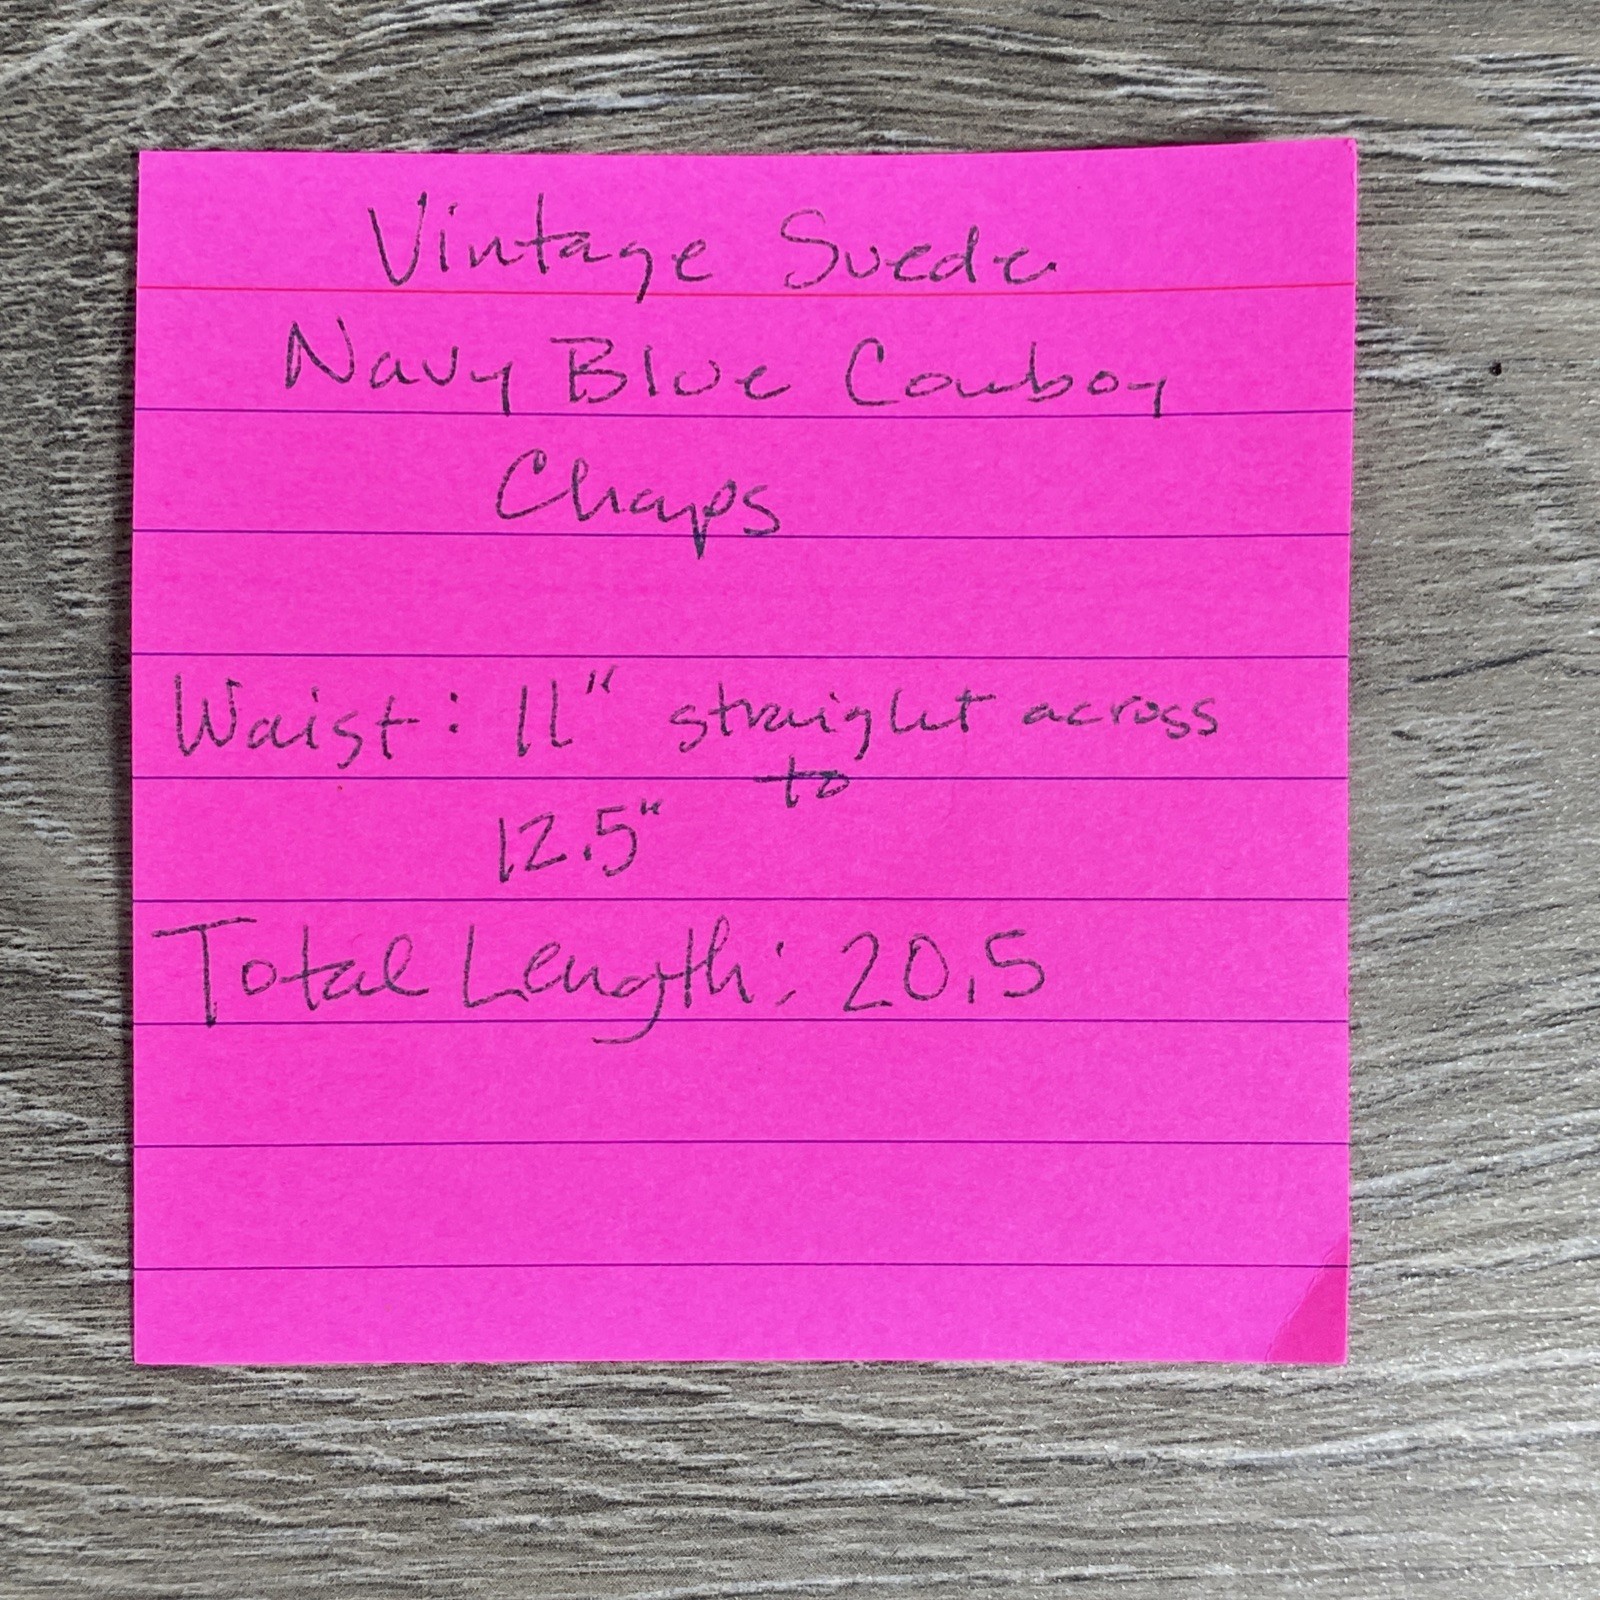 Vintage Suede
Navy Blue Cowboy
Chaps
Waist: 11" straight across
to
12.5"
Total Length: 20.5